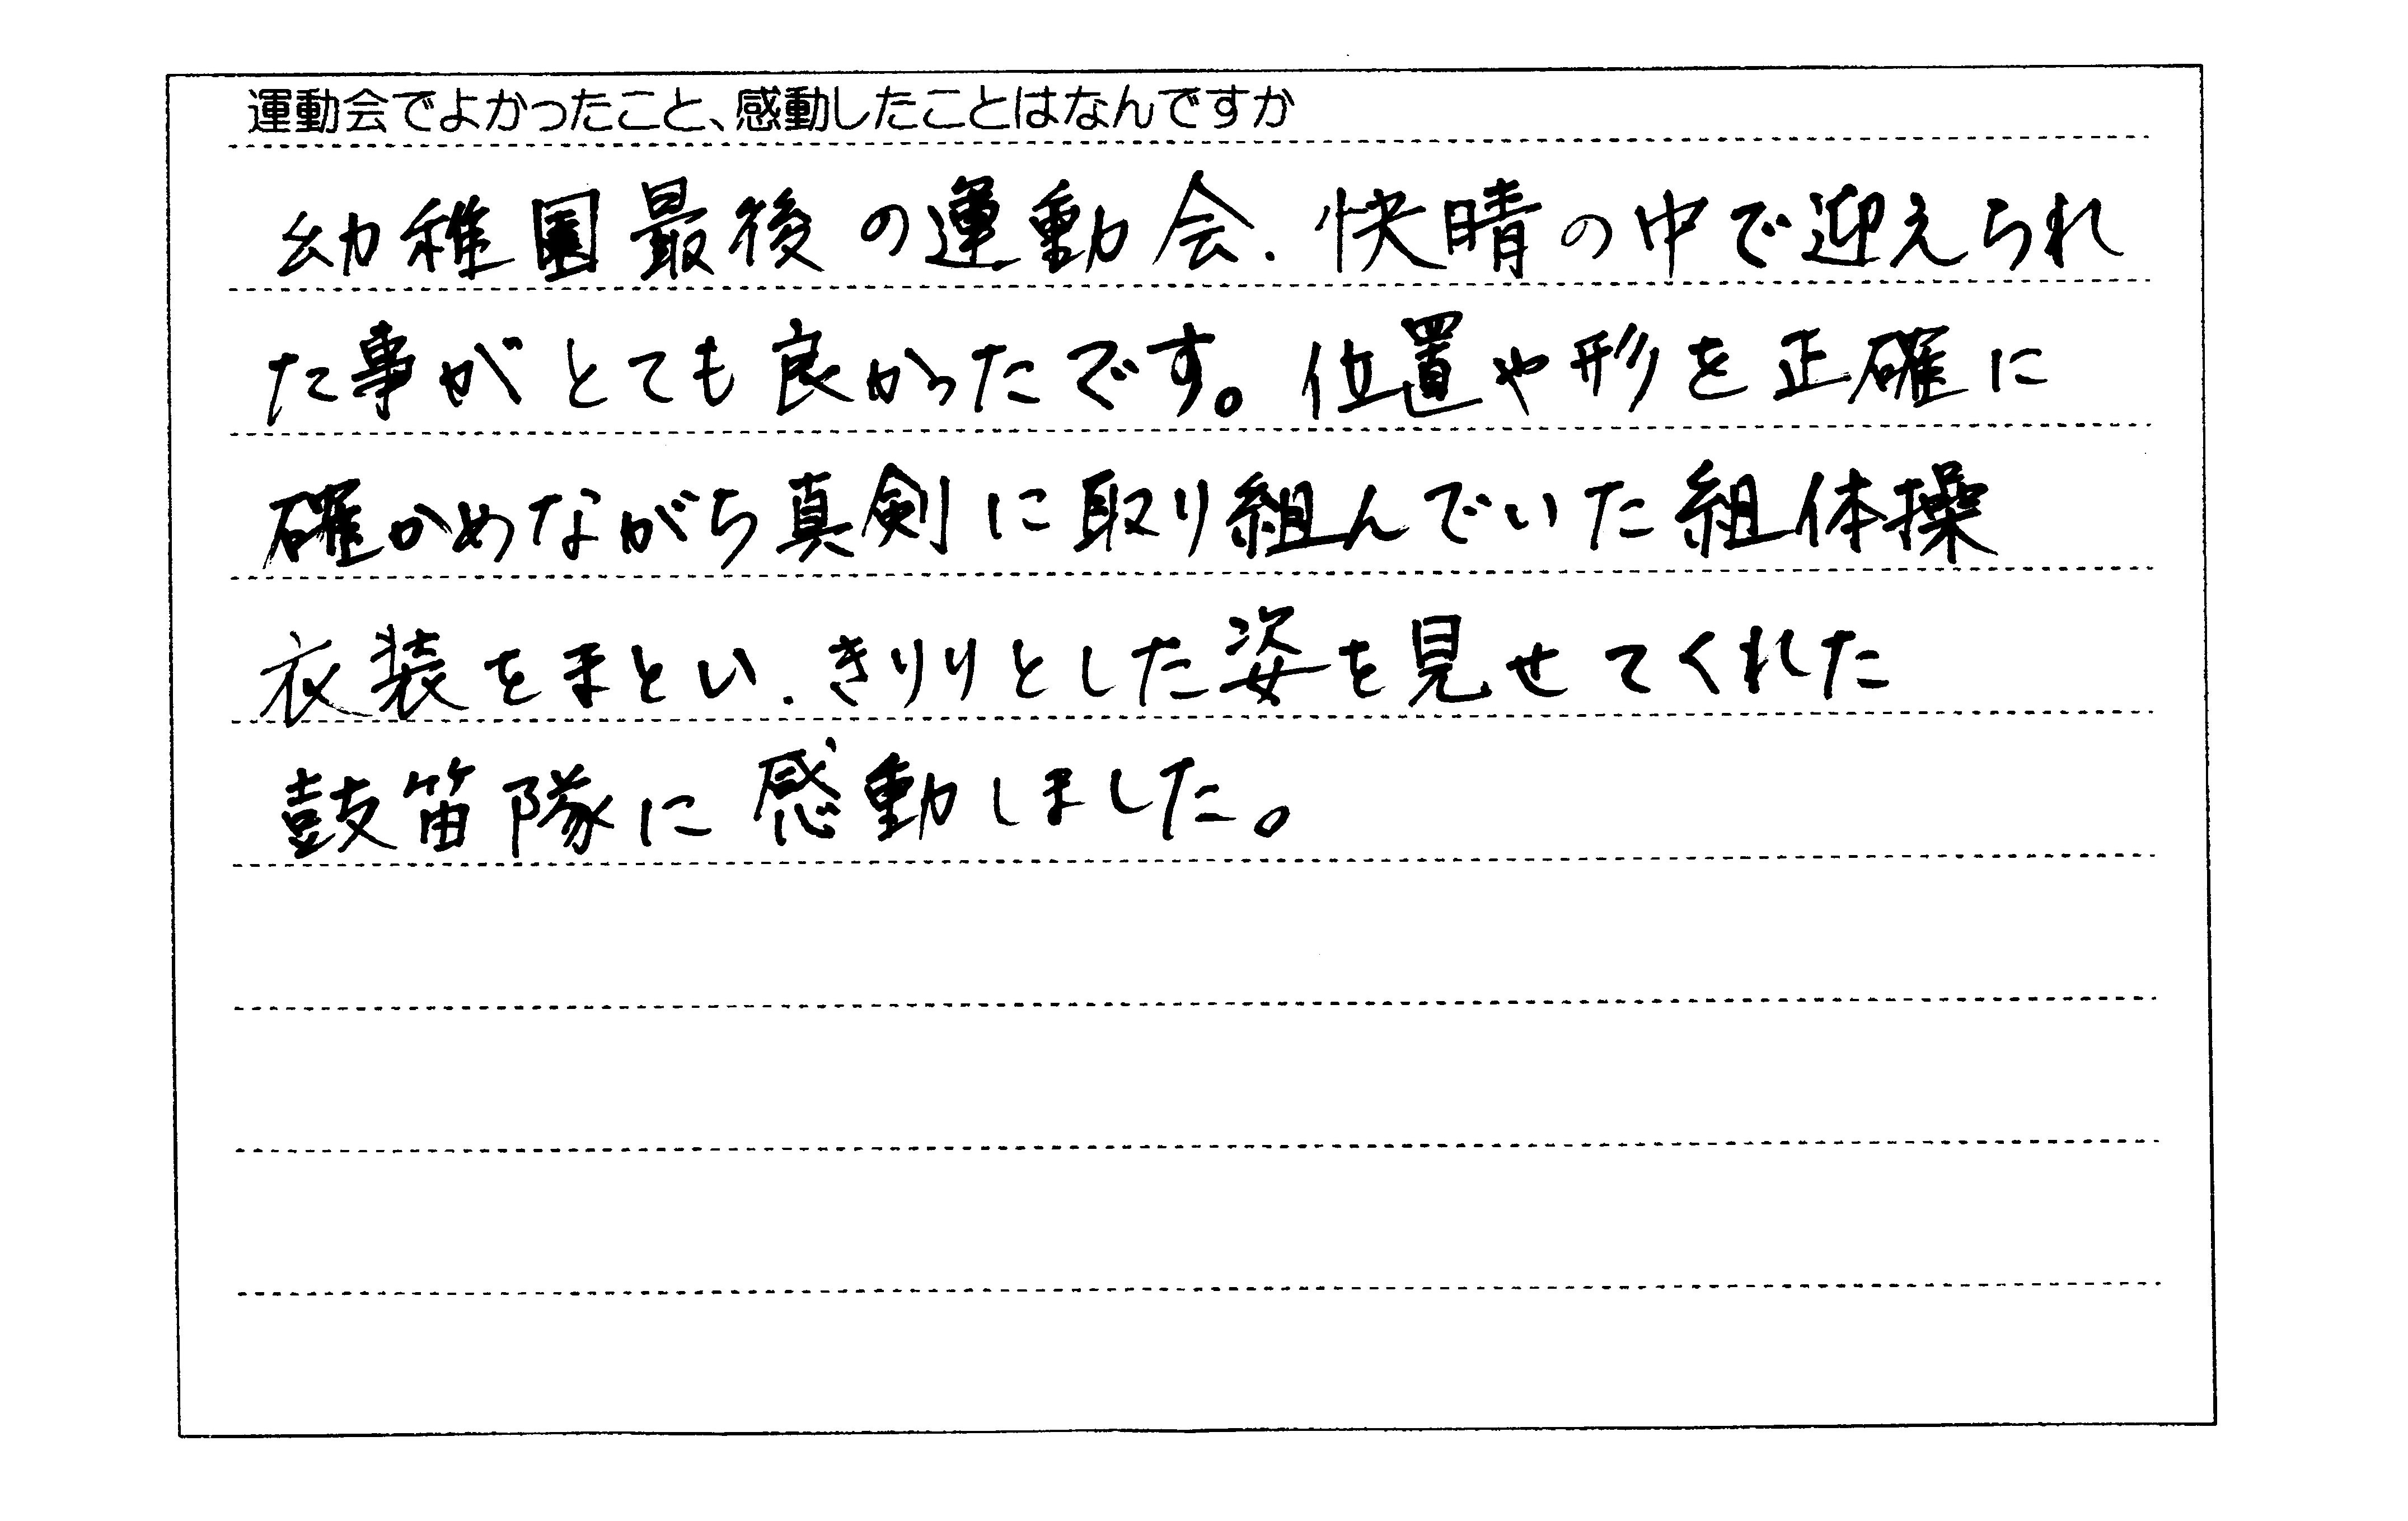 運動会でよかったこと、感動したことはなんですか
幼稚園最後の運動会、快晴の中で迎えられ
た事がとても良かったです。位置や形を正確に
確かめながら真剣に取り組んでいた組体操
衣装をまとい、きりりとした姿を見せてくれた
鼓笛隊に感動しました。